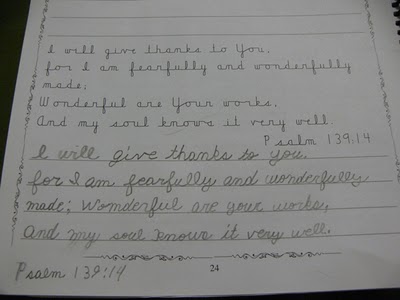 I will give thanks to You,
for I am fearfully and wonderfully
made;
Wonderful are Your works,
And my soul knows it very well.
Psalm 139:14
I will give thanks to you.
for I am fearfully and wonderfully
made; Womderful are your works,
And my soul knows it very well.
Psalm 139:14
24